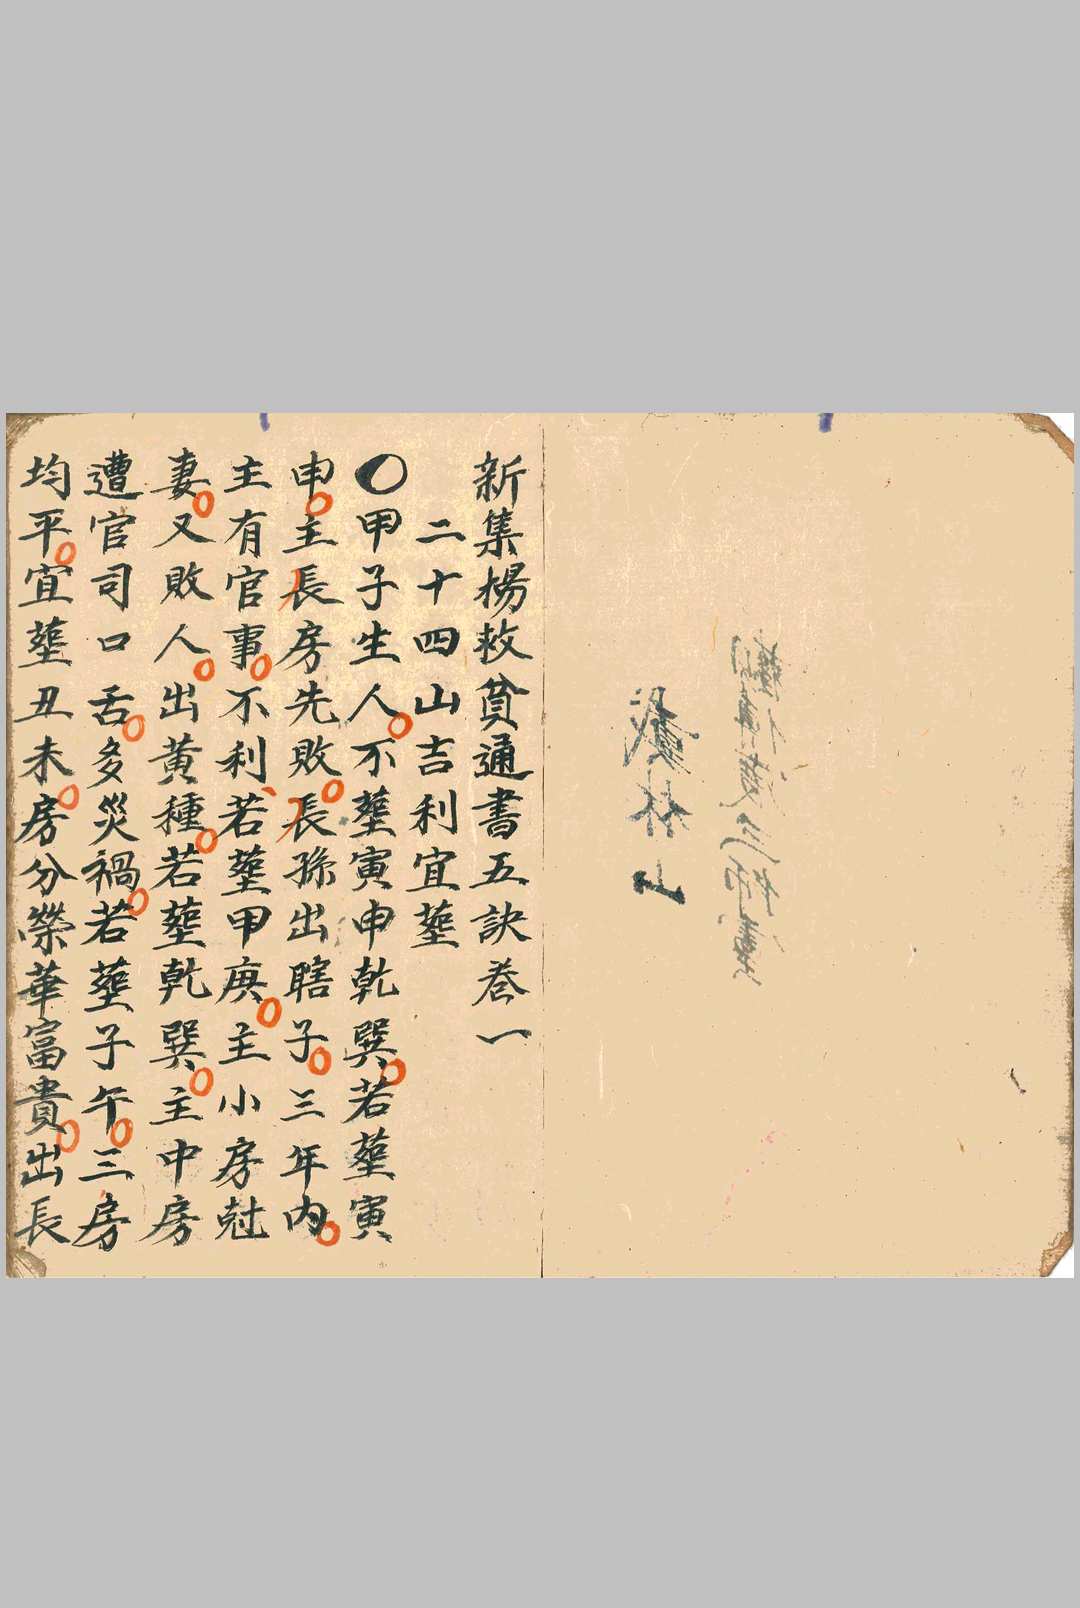 新集楊救貧通書五訣巻一
二十四山吉利宜塟
〇甲子生人不塟寅申乾巽若塟寅
申主長房先敗長孫出瞎子三年内
主有官事不利若塟甲庚主小房尅
妻又敗人出黄種若塟乾巽主中房
遭官司口舌多災禍若塟子午三房
均平宜塟丑未房分榮華富貴出長